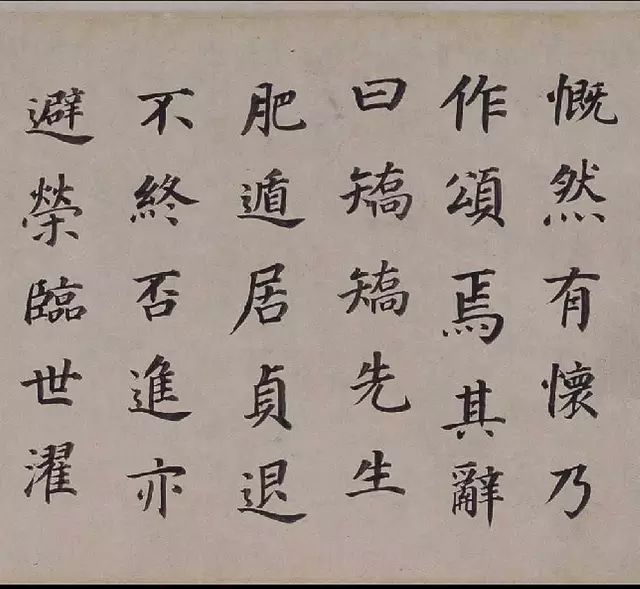 慨然有懷乃
作頌焉其辭
曰矯矯先生
肥遁居貞退
不終否進亦
避榮臨世濯